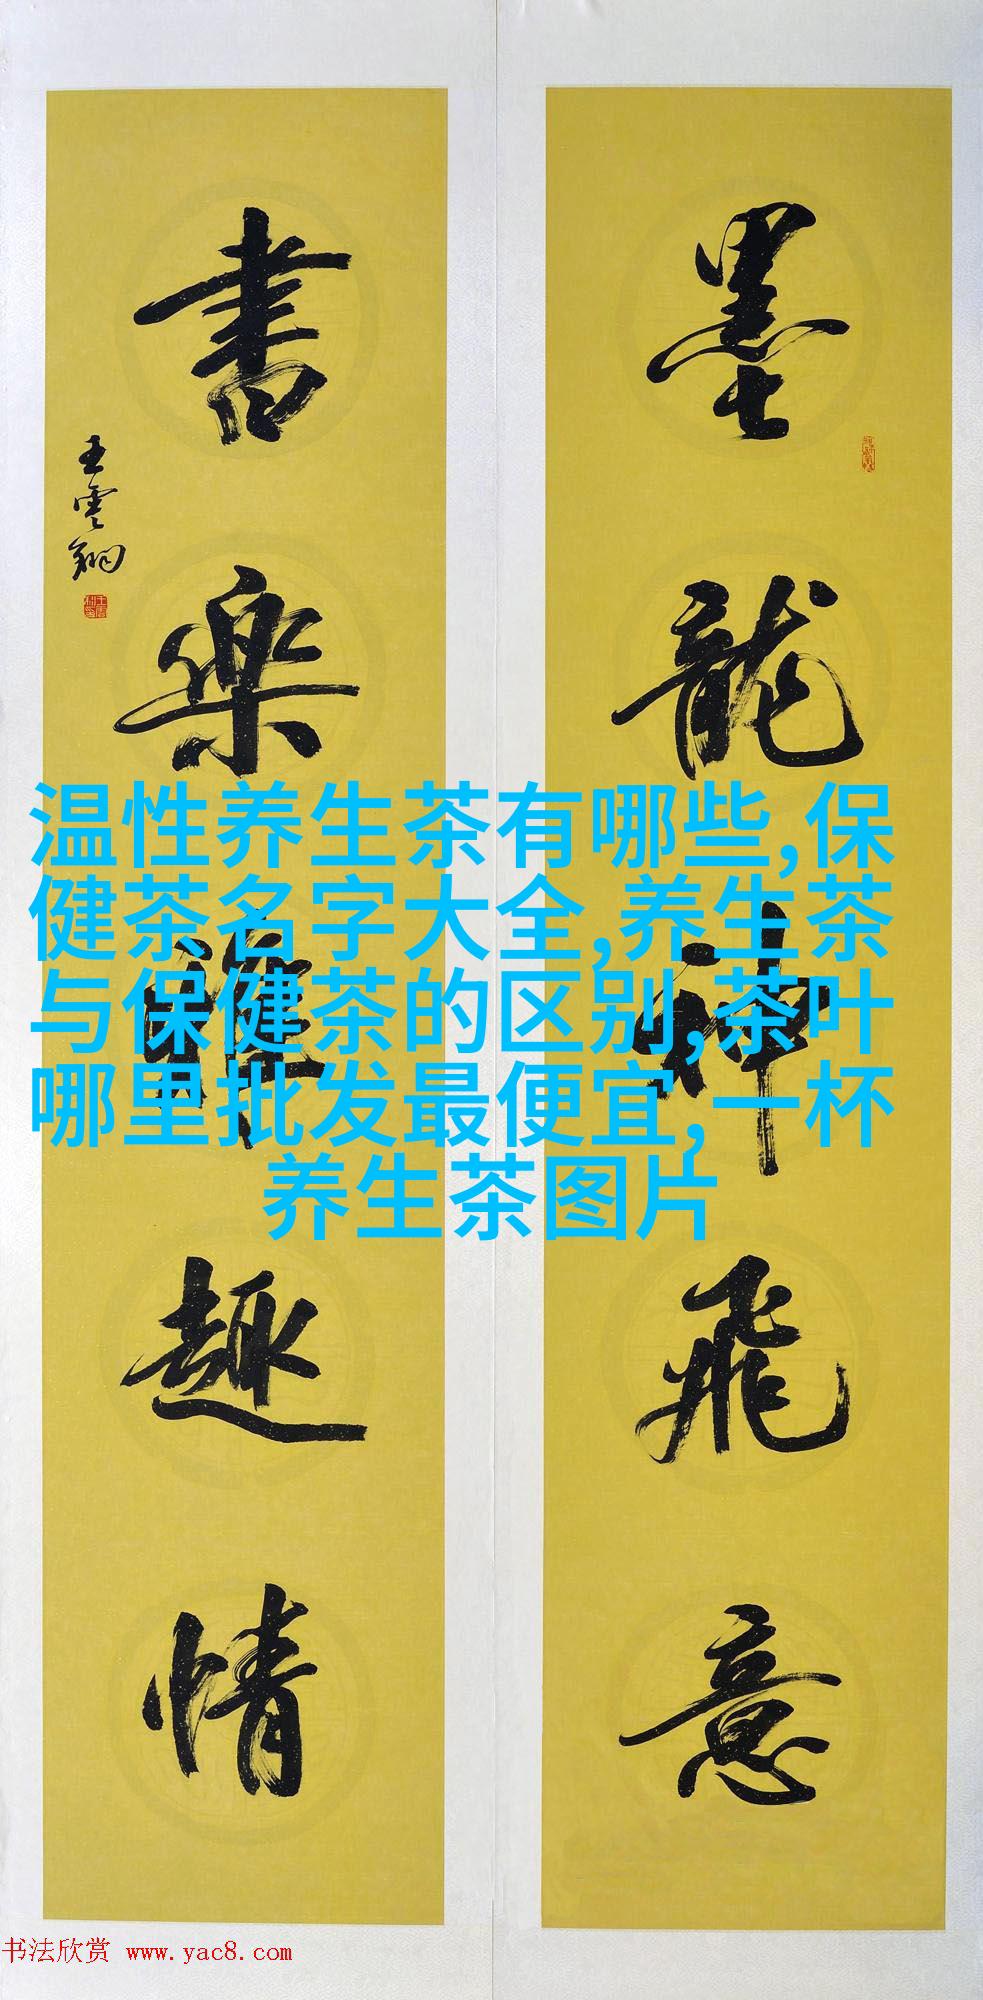 墨龍神飛意
書楽雅趣情
王雲翔
温性养生茶有哪些,保
健茶名字大全,养生茶
与保健茶的区别,茶叶
哪里批发最便宜,一杯
养生茶图片
书法欣赏 www.yac8.com